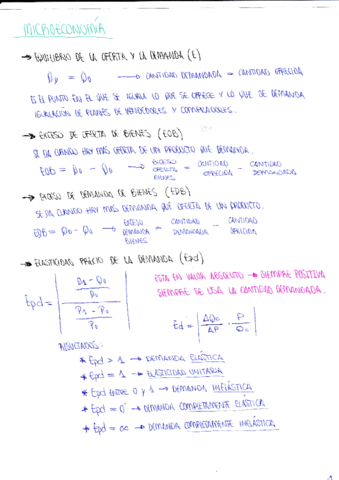 MICROECONOMÍA
→ EQUILIBRIO DE LA OFERTA Y LA DEMANDA (E)
= → CANTIDAD DEMANDADA = CANTIDAD OFRECIDA
ES EL PUNTO EN EL QUE SE IGUALA LO QUE SE OFRECE Y LO QUE SE DEMANDA
IGUALACIÓN DE PLANES DE VENDEDORES Y COMPRADORES.
→ EXCESO DE OFERTA DE BIENES (EOB)
SE DA CUANDO HAY MÁS OFERTA DE UN PRODUCTO QUE DEMANDA.
EOB = → EXCESO OFERTA BIENES = CANTIDAD OFRECIDA - CANTIDAD DEMANDADA
→ EXCESO DE DEMANDA DE BIENES (EDB)
SE DA CUANDO HAY MÁS DEMANDA QUE OFERTA DE UN PRODUCTO.
EDB = → EXCESO DEMANDA BIENES = CANTIDAD DEMANDADA - CANTIDAD OFRECIDA
→ ELASTICIDAD PRECIO DE LA DEMANDA (Epd)
ESTA EN VALOR ABSOLUTO → SIEMPRE POSITIVA
SIEMPRE SE USA LA CANTIDAD DEMANDADA.
Epd =
P1 - P0
P0
Ed = | ΔQD / ΔP · P / QD |
RESULTADOS:
* Epd > 1 → DEMANDA ELÁSTICA
* Epd = 1 → ELASTICIDAD UNITARIA
* Epd ENTRE 0 Y 1 → DEMANDA INELÁSTICA
* Epd = 0 → DEMANDA COMPLETAMENTE ELÁSTICA
* Epd = ∞ → DEMANDA COMPLETAMENTE INELÁSTICA